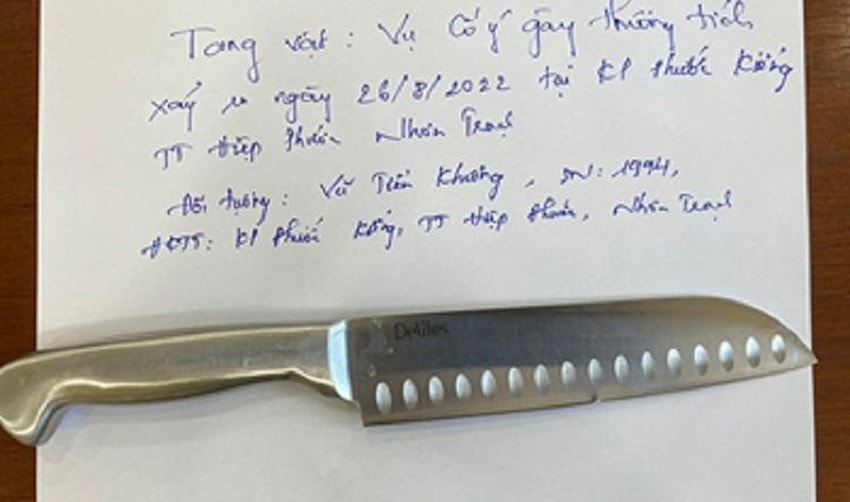 Tang vật: Vụ Cố ý gây thương tích
xảy ra ngày 26/8/2022 tại KP Phước Kiểng
TT Hiệp Phước Nhơn Trạch
Đối tượng: Vũ Tiến Khương, SN: 1994,
HKTT: KP Phước Kiểng, TT Hiệp Phước, Nhơn Trạch